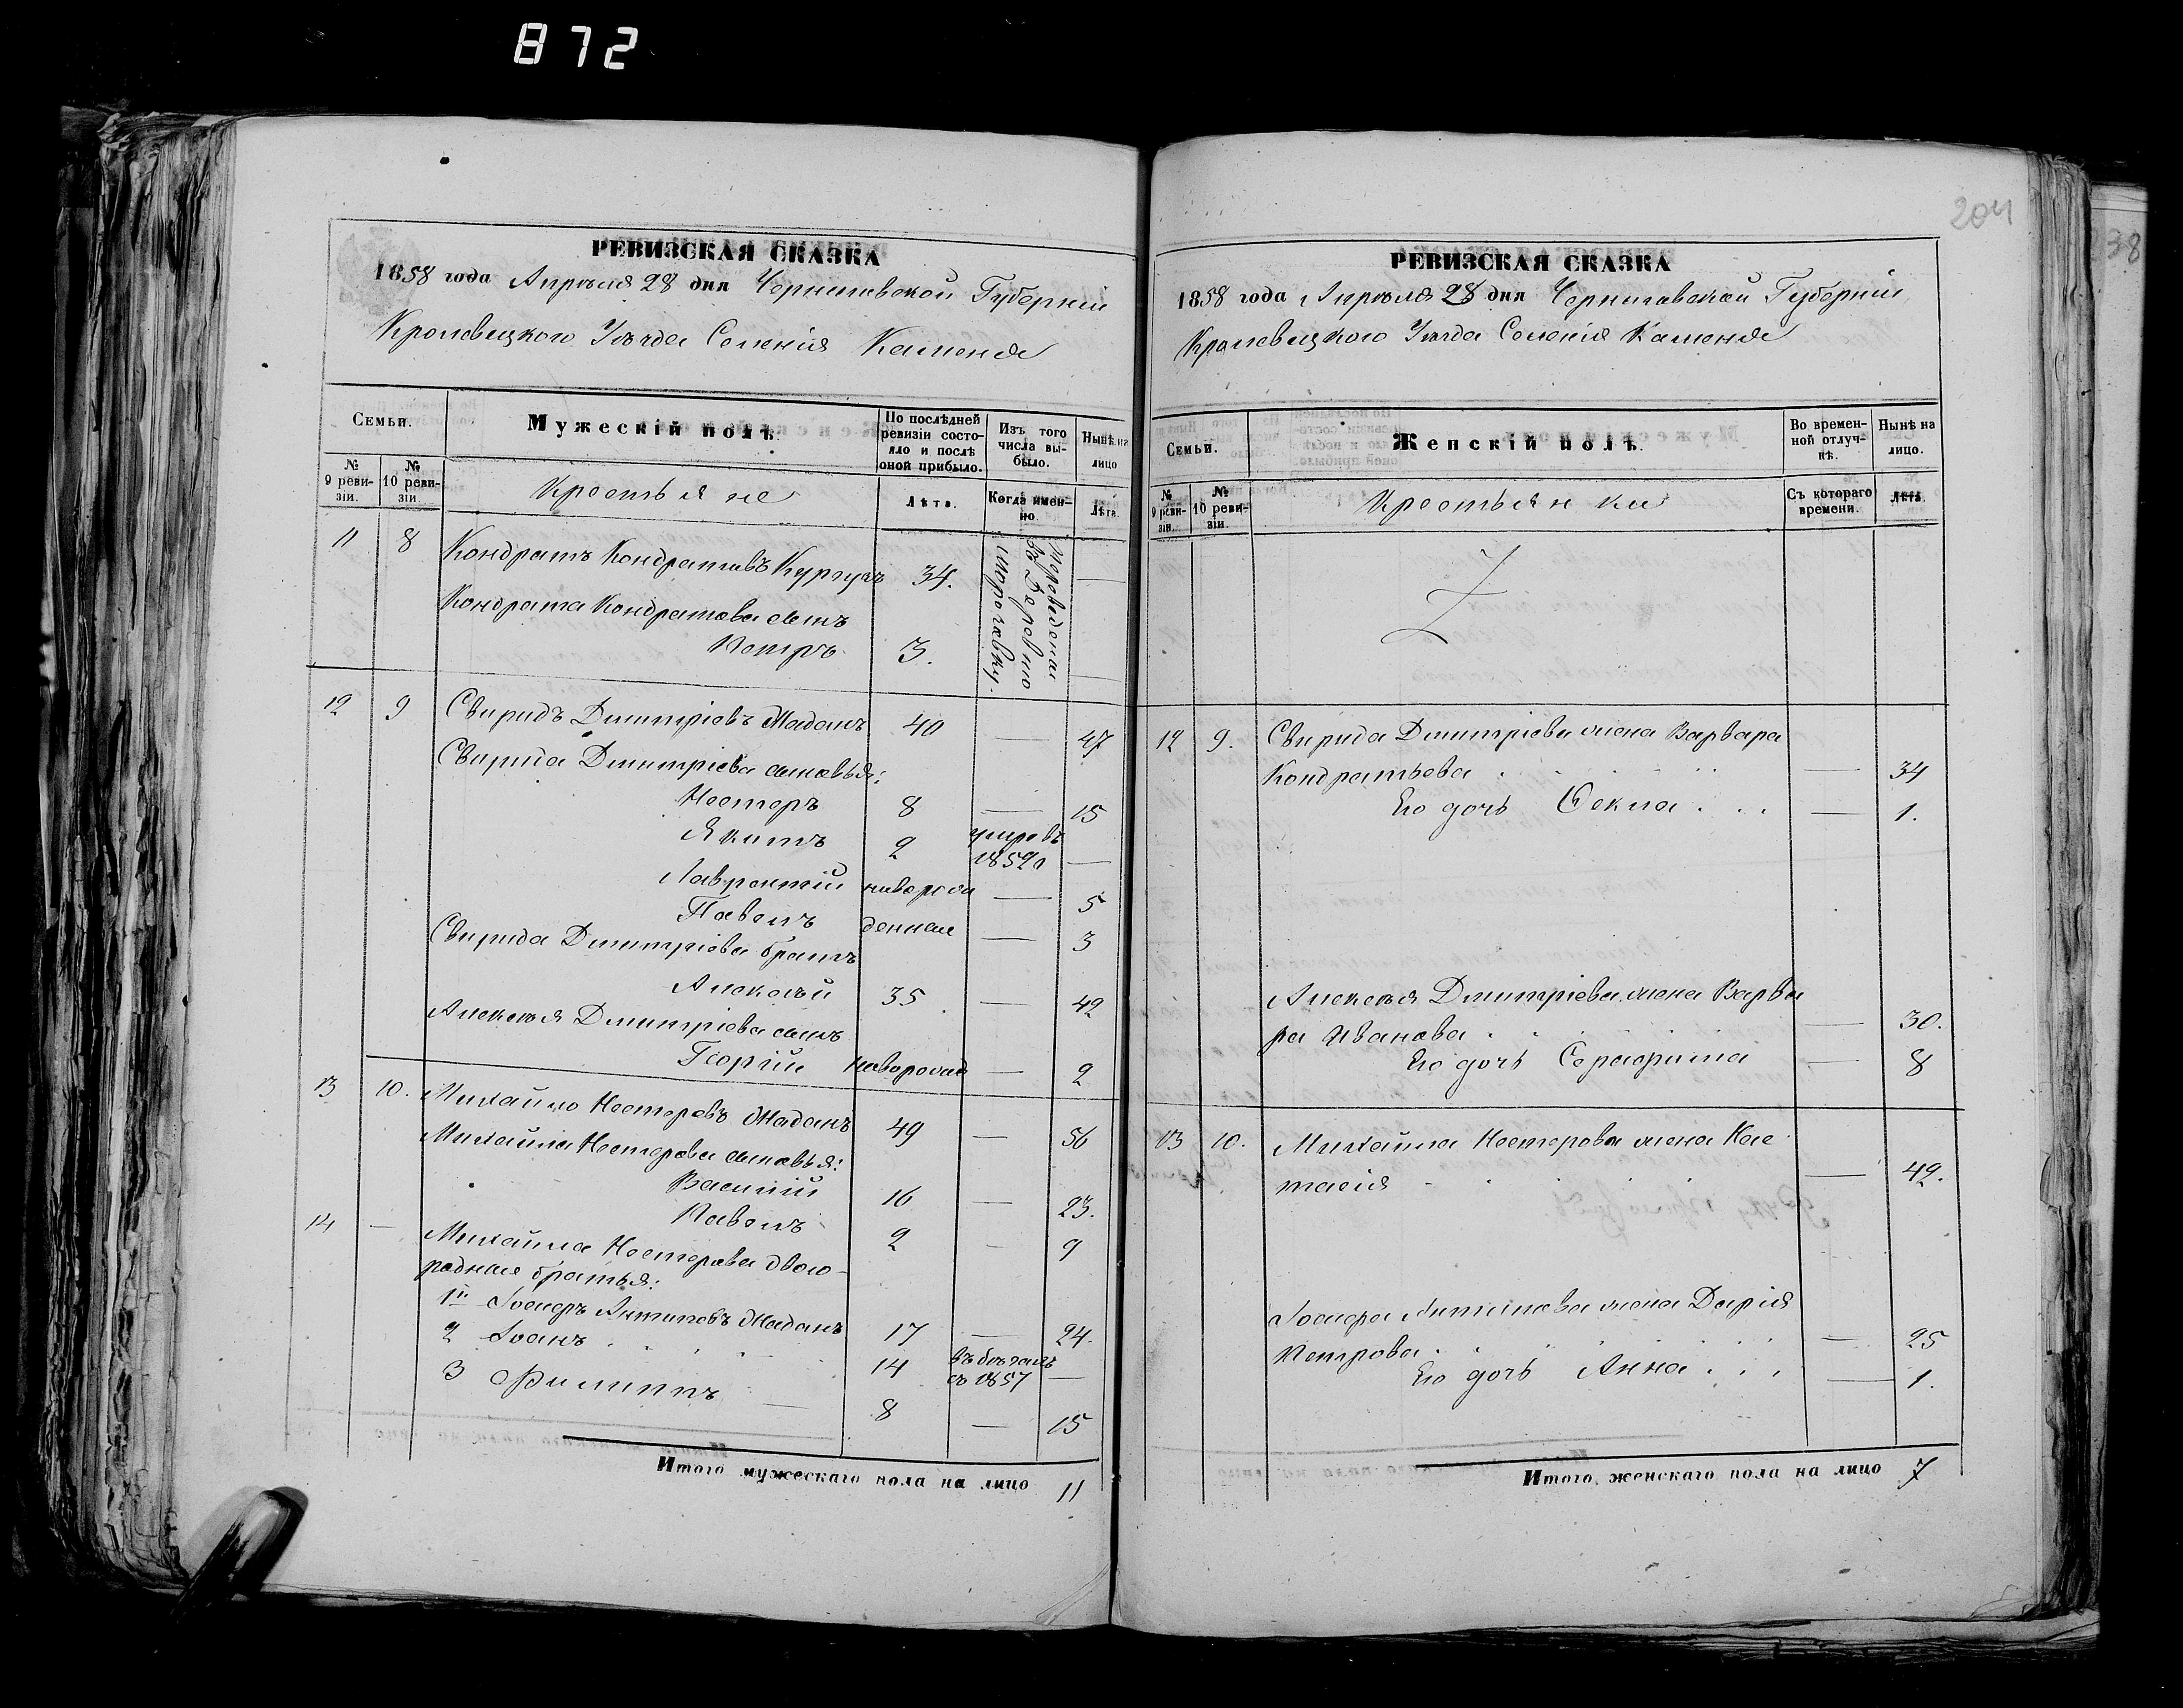 872
РЕВИЗСКАЯ СКАЗКА
1858 года Апрѣля 28 дня Черниговской Губерніи
Кролевецкого Уѣзда Селенія Каменя
Семьи.
Мужескій полъ.
По послѣдней ревизіи состояло и послѣ оной прибыло.
Изъ того числа выбыло.
Нынѣ на лицо
№ 9 ревизіи.
№ 10 ревизіи.
Крестьяне
Лѣта.
Когда именно.
Лѣта.
11 8 Кондратъ Кондратовъ Кургузъ 34. —
Кондрата Кондратова сынъ
Петръ 3. —
Переведены
въ Деревню
12 9 Свиридъ Дмитріевъ Жаданъ 40 — 47
Свирида Дмитріева сыновья:
Нестеръ 8 — 15
Якимъ 2 умре въ 1852 —
Лаврентій новорож — 5
Павелъ денные — 3
Свирида Дмитріева братъ
Алексѣй 35 — 42
Алексѣя Дмитріева сынъ
Георгій новорожд — 2
13 10. Михайло Нестеровъ Жаданъ 49 — 56
Михайла Нестерова сыновья:
Василій 16 — 23.
Павелъ 2 — 9
14 — Михайла Нестерова двою-
родные братья:
1й Іосифъ Антиповъ Жаданъ 17 — 24.
2 Іванъ 14 въ бѣгахъ съ 1857 —
3 Филиппъ — 8 — 15
Итого мужескаго пола на лицо 11
204
38
РЕВИЗСКАЯ СКАЗКА
1858 года Апрѣля 28 дня Черниговской Губерніи
Кролевецкого Уѣзда Селенія Каменя
Семьи.
Женскій полъ.
Во временной отлучкѣ.
Нынѣ на лицо.
№ 9 ревизіи.
№ 10 ревизіи.
Крестьянки
Съ котораго времени.
Лѣта.
12 9. Свирида Дмитріева жена Варвара
Кондратьева — 34
Его дочь Фекла — 1.
Алексѣя Дмитріева жена Варва
ра Иванова — 30.
Его дочь Серафима — 8
13 10. Михайла Нестерова жена Нас
тасія — 42.
Іосифа Антипова жена Дарія
Петрова — 25
Его дочь Анна — 1.
Итого женскаго пола на лицо 7